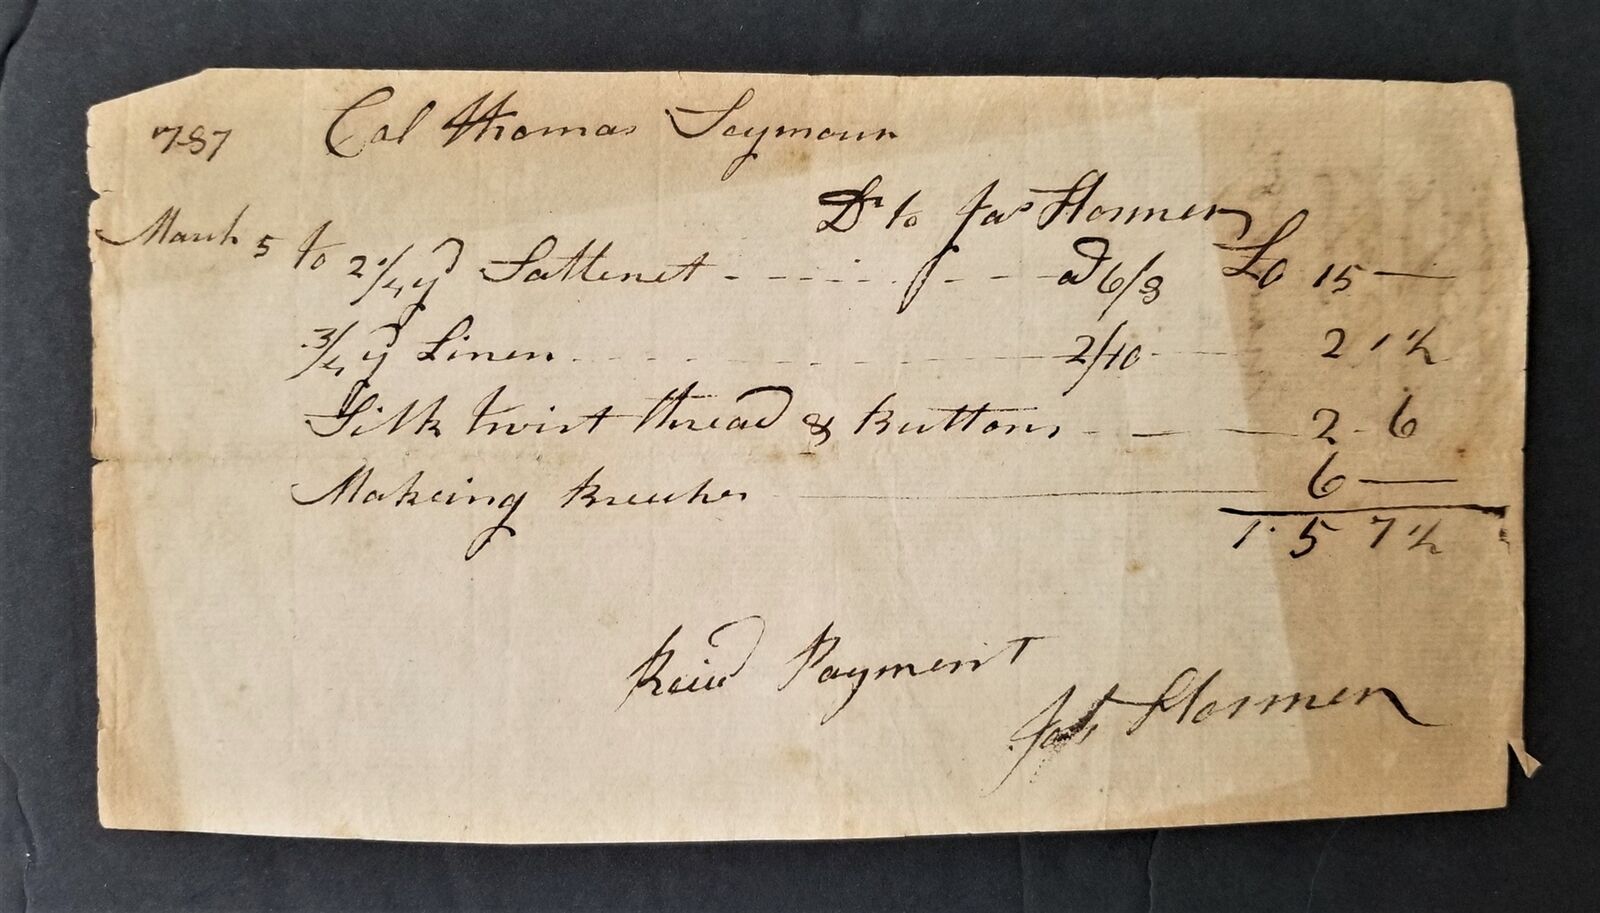 787 Col Thomas Seymour
Dr to Jas Hosmer
March 5 to 2 1/4 yd Sattenet - - - - - - - a 6/8 £0 15 —
3/4 yd Linen - - - - - - 2/10 - - 2 1 1/2
Silk twist thread & Buttons - - - 2 - 6
Makeing Breeches 6 —
1 · 5 7 1/2
Recivd Payment
Jas Hosmer